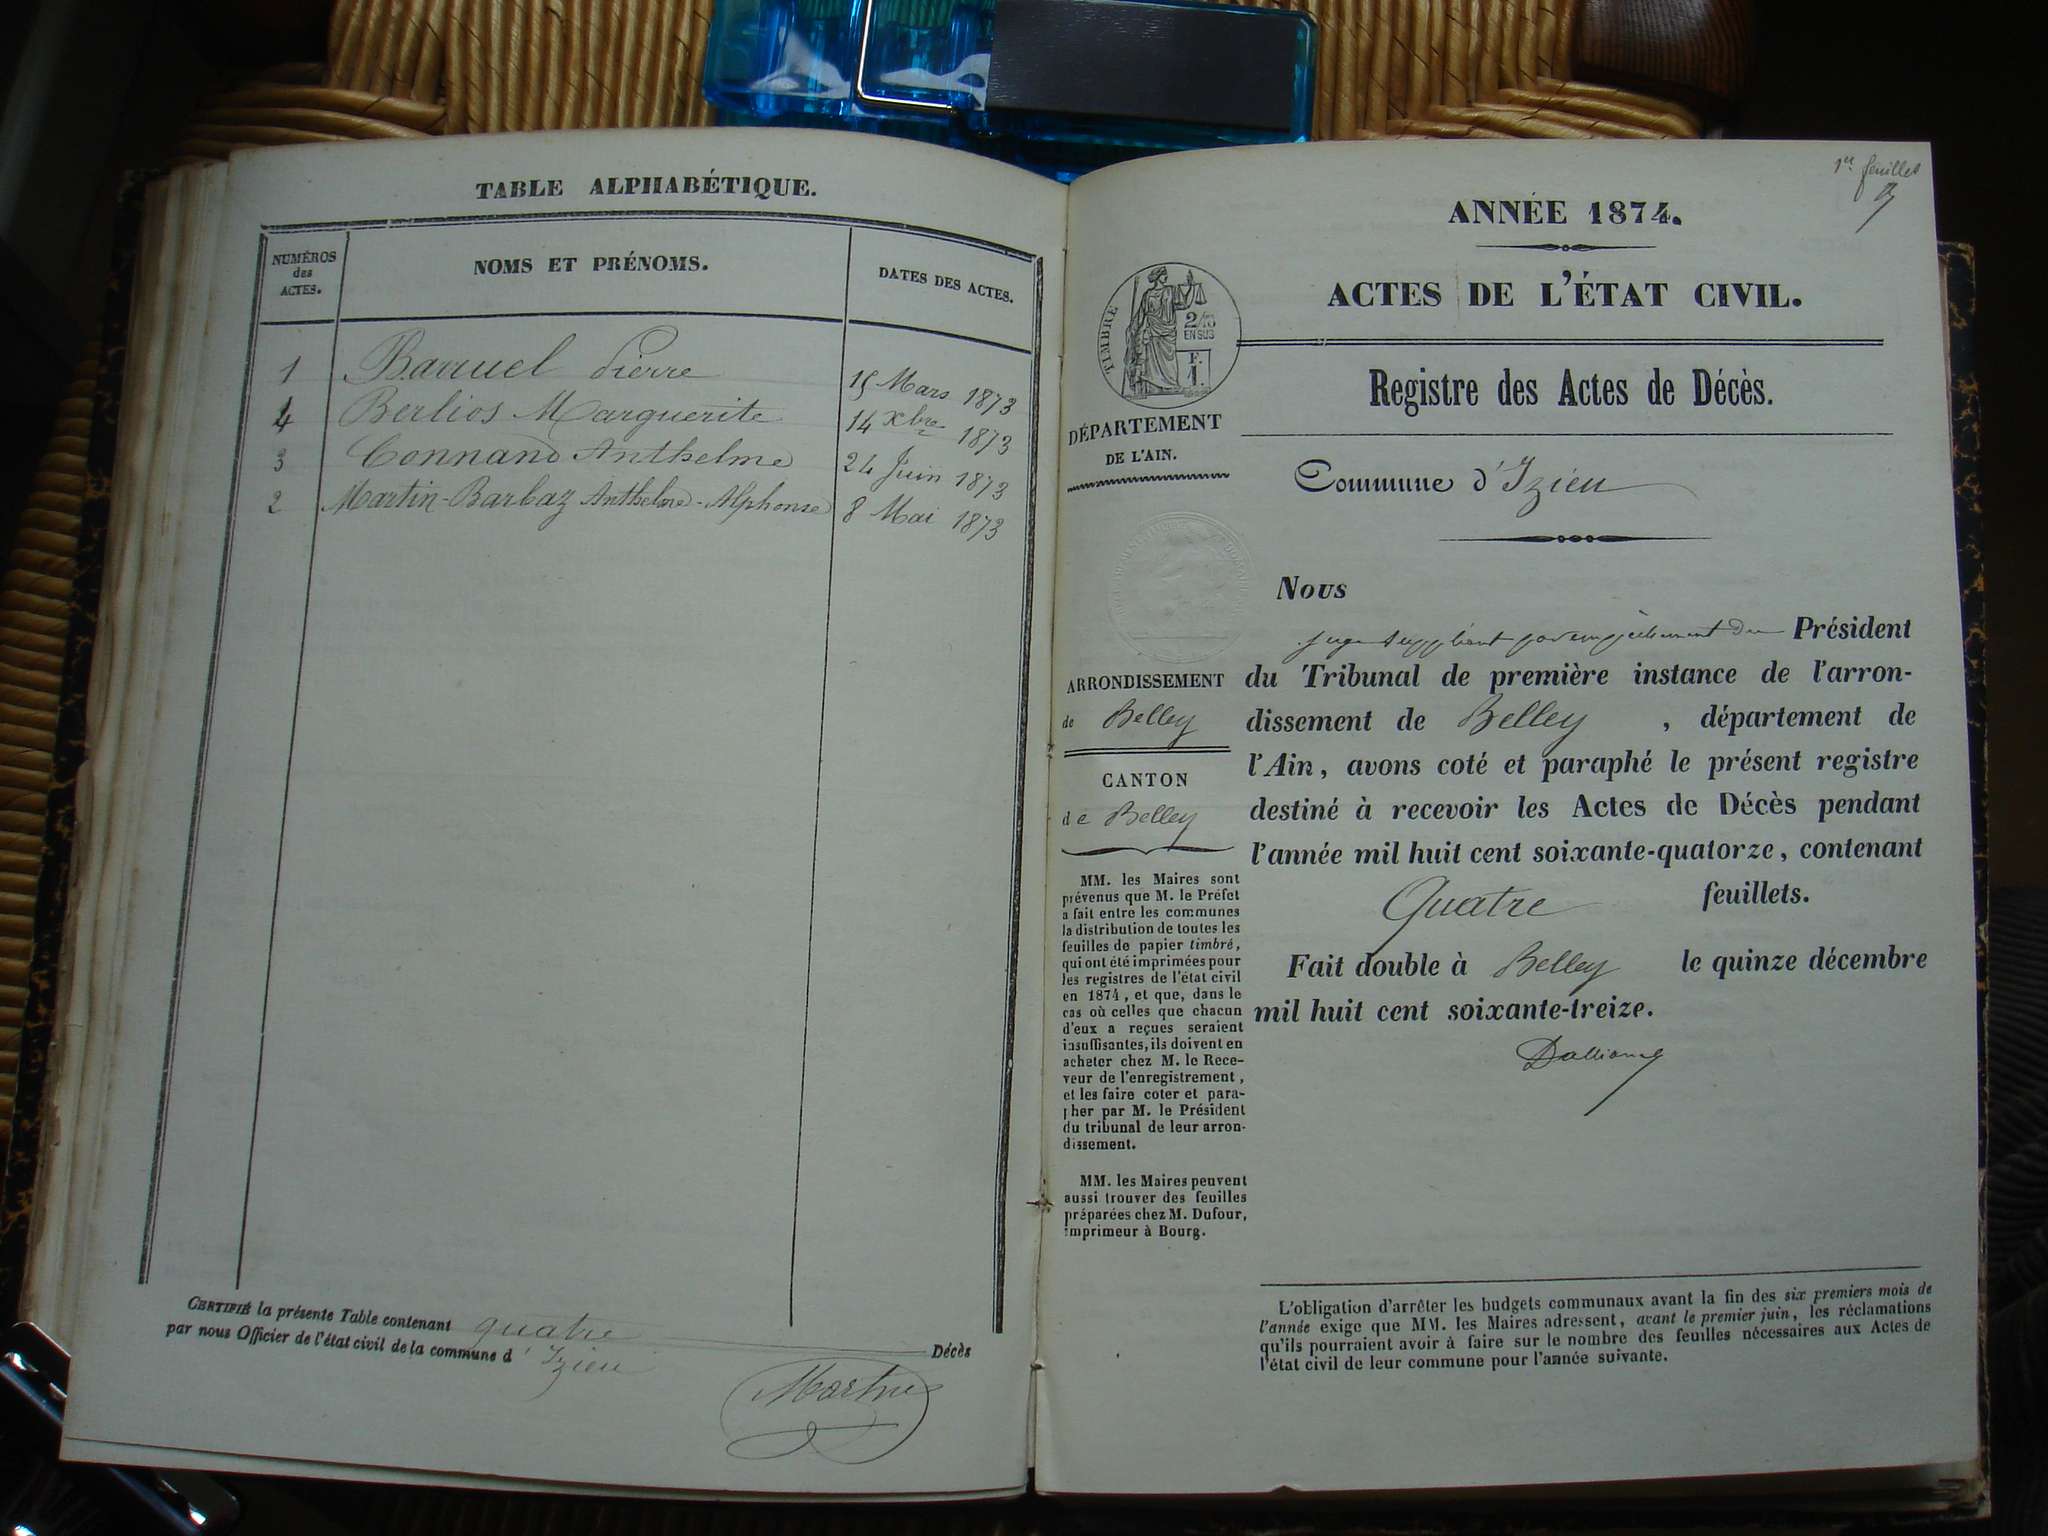 TABLE ALPHABÉTIQUE.
NUMÉROS des ACTES. NOMS ET PRÉNOMS. DATES DES ACTES.
1 Barruel Pierre 15 Mars 1873
4 Berlios Marguerite 14 Xbre 1873
3 Connand Anthelme 24 Juin 1873
2 Martin-Barbaz Anthelme-Alphonse 8 Mai 1873
CERTIFIÉ la présente Table contenant quatre Décès
par nous Officier de l'état civil de la commune d'Izieu
Martin
1er feuillet
ANNÉE 1874.
ACTES DE L'ÉTAT CIVIL.
TIMBRE
2/10
EN SUS
F.
1.
Registre des Actes de Décès.
DÉPARTEMENT
DE L'AIN.
Commune d'Izieu
ARRONDISSEMENT
de Belley
CANTON
de Belley
MM. les Maires sont
prévenus que M. le Préfet
a fait entre les communes
la distribution de toutes les
feuilles de papier timbré,
qui ont été imprimées pour
les registres de l'état civil
en 1874, et que, dans le
cas où celles que chacun
d'eux a reçues seraient
insuffisantes, ils doivent en
acheter chez M. le Rece-
veur de l'enregistrement,
et les faire coter et para-
pher par M. le Président
du tribunal de leur arron-
dissement.
MM. les Maires peuvent
aussi trouver des feuilles
préparées chez M. Dufour,
imprimeur à Bourg.
Nous
juge suppléant par empêchement du Président
du Tribunal de première instance de l'arron-
dissement de Belley, département de
l'Ain, avons coté et paraphé le présent registre
destiné à recevoir les Actes de Décès pendant
l'année mil huit cent soixante-quatorze, contenant
Quatre feuillets.
Fait double à Belley le quinze décembre
mil huit cent soixante-treize.
L'obligation d'arrêter les budgets communaux avant la fin des six premiers mois de
l'année exige que MM. les Maires adressent, avant le premier juin, les réclamations
qu'ils pourraient avoir à faire sur le nombre des feuilles nécessaires aux Actes de
l'état civil de leur commune pour l'année suivante.